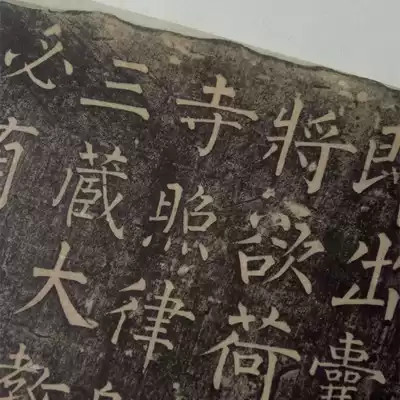 即出囊
將欲荷
寺照律
三藏大教
必有